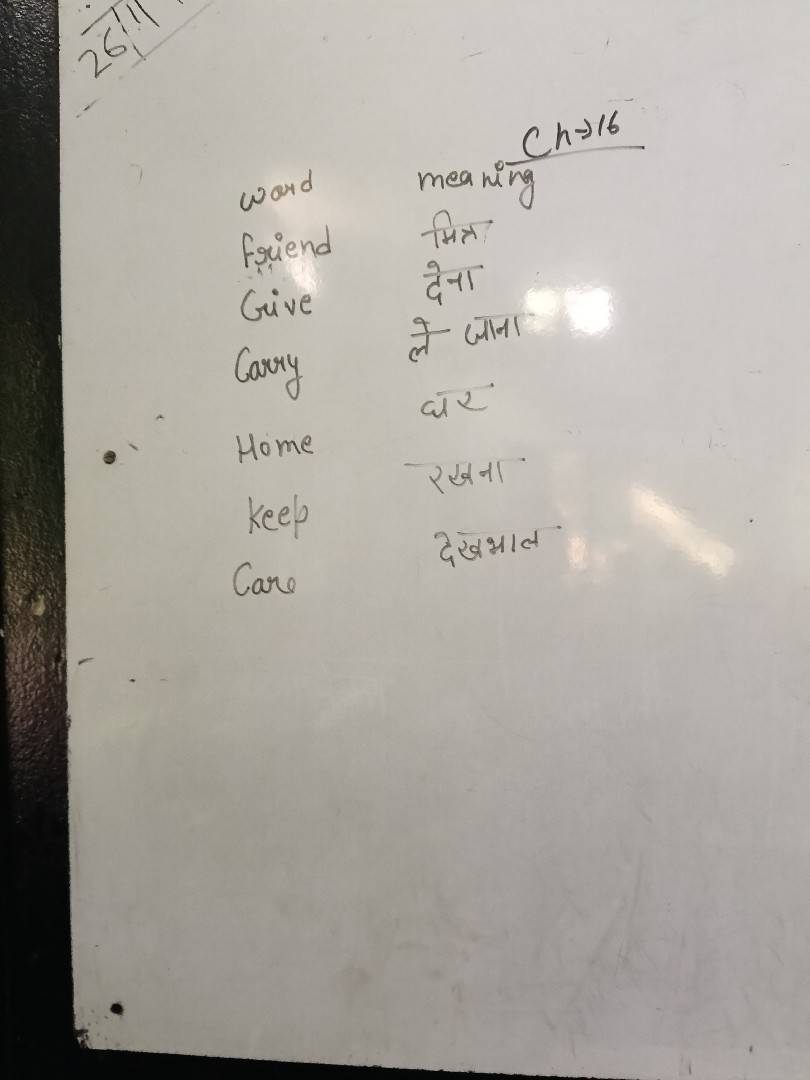 26/11
Ch→16
word meaning
Friend मित्र
Give देना
Carry ले जाना
Home घर
Keep रखना
Care देखभाल